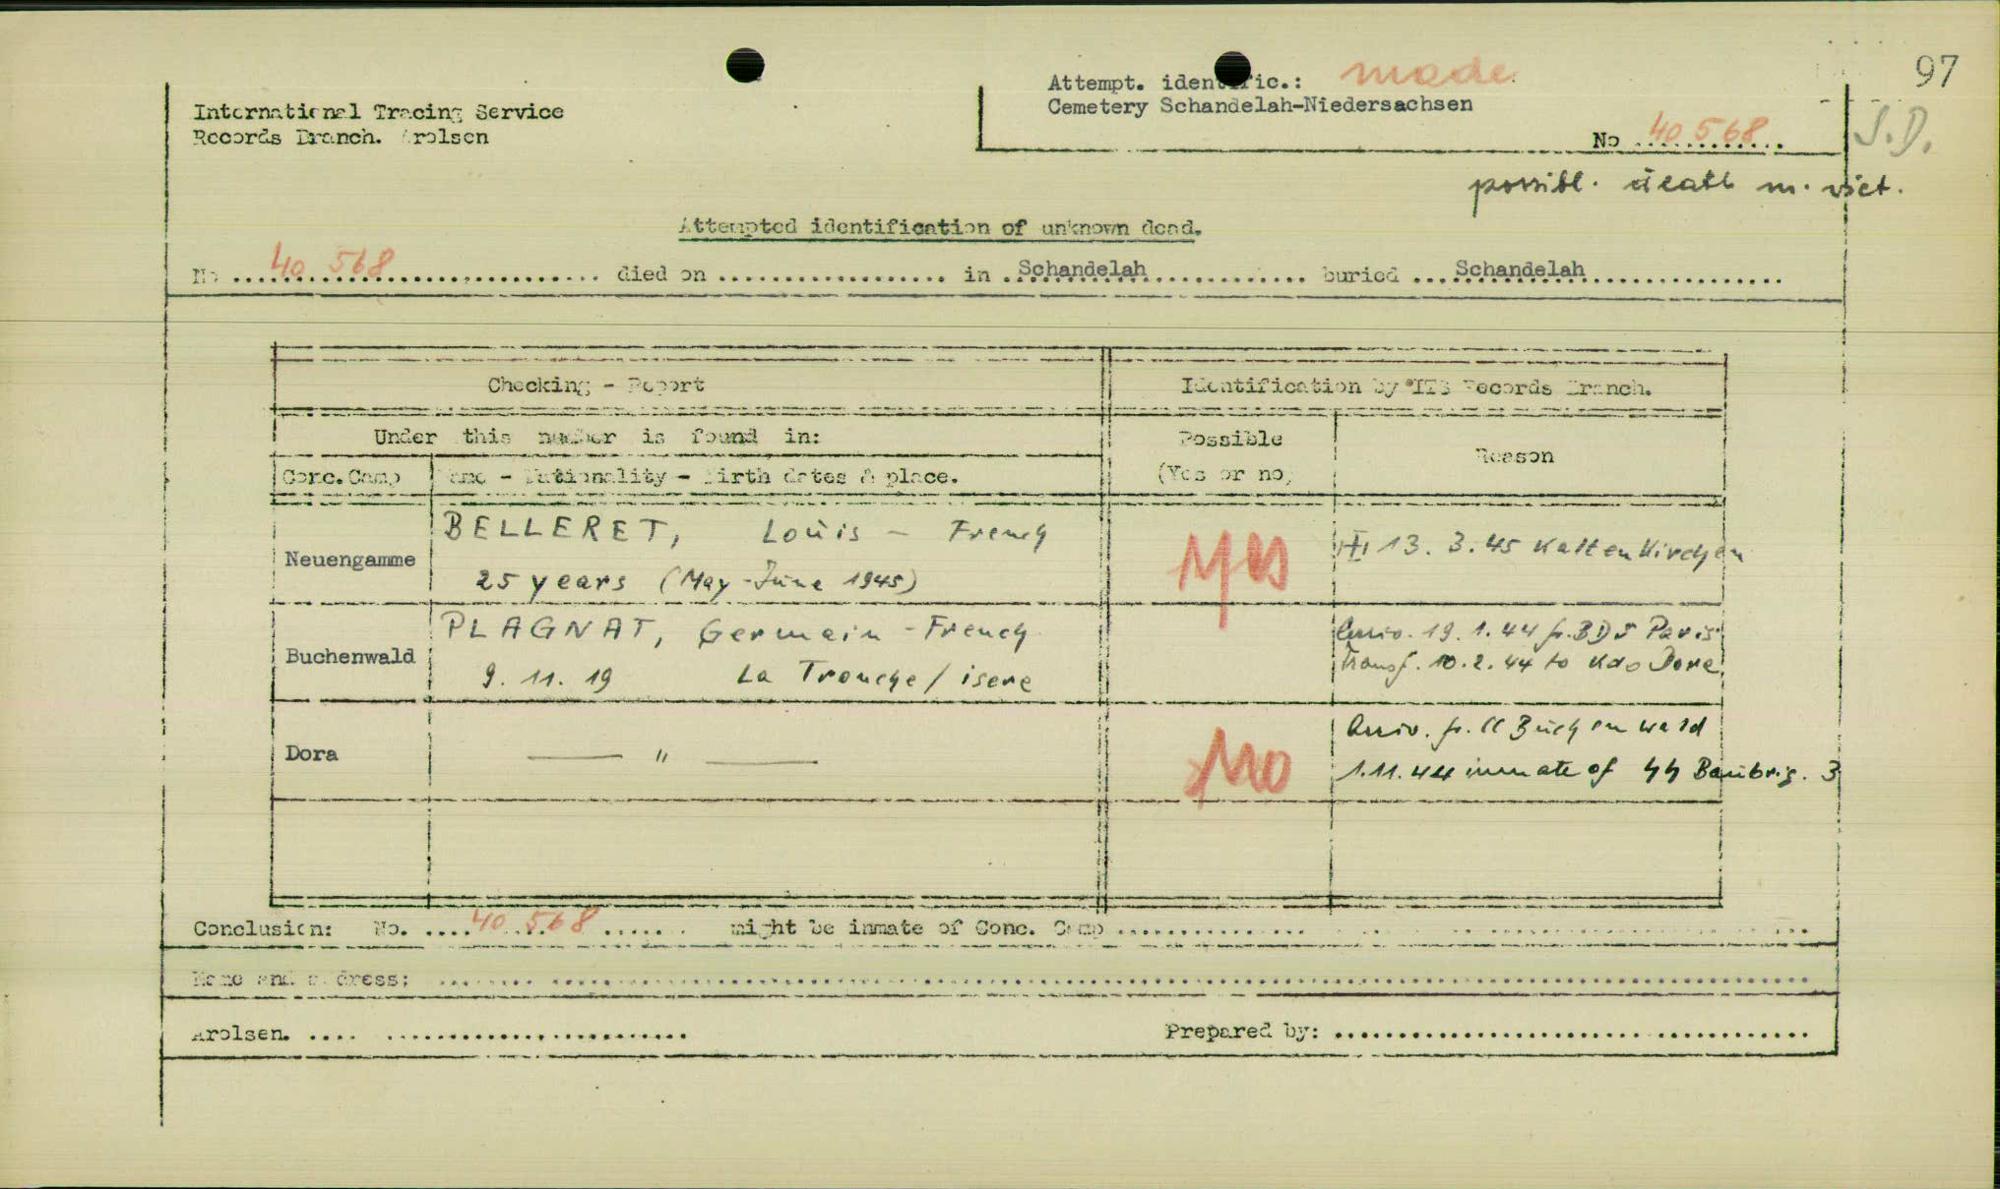 97
Attempt. identific.: made
International Tracing Service
Cemetery Schandelah-Niedersachsen
Records Branch. Arolsen
No 40 568
S.D.
possibl. death m. vict.
Attempted identification of unknown dead.
No 40 568 died on in Schandelah buried Schandelah
Checking - Report
Identification by ITS Records Branch.
Under this number is found in:
Possible
(Yes or no)
Reason
Conc.Camp
Name - Nationality - Birth dates & place.
Neuengamme
BELLERET, Louis - French
25 years (May-June 1945)
yes
13. 3. 45 Kaltenkirchen
Buchenwald
PLAGNAT, Germain - French
9. 11. 19 La Tronche/isere
Arriv. 19. 1. 44 fr. BDS Paris
Transf. 10. 2. 44 to Kdo Dora
Dora
— " —
no
Arriv. fr. CC Buchenwald
1.11.44 inmate of SS Baubrig. 3
Conclusion: No. 40 568 might be inmate of Conc. Camp
Name and address:
Arolsen.
Prepared by: